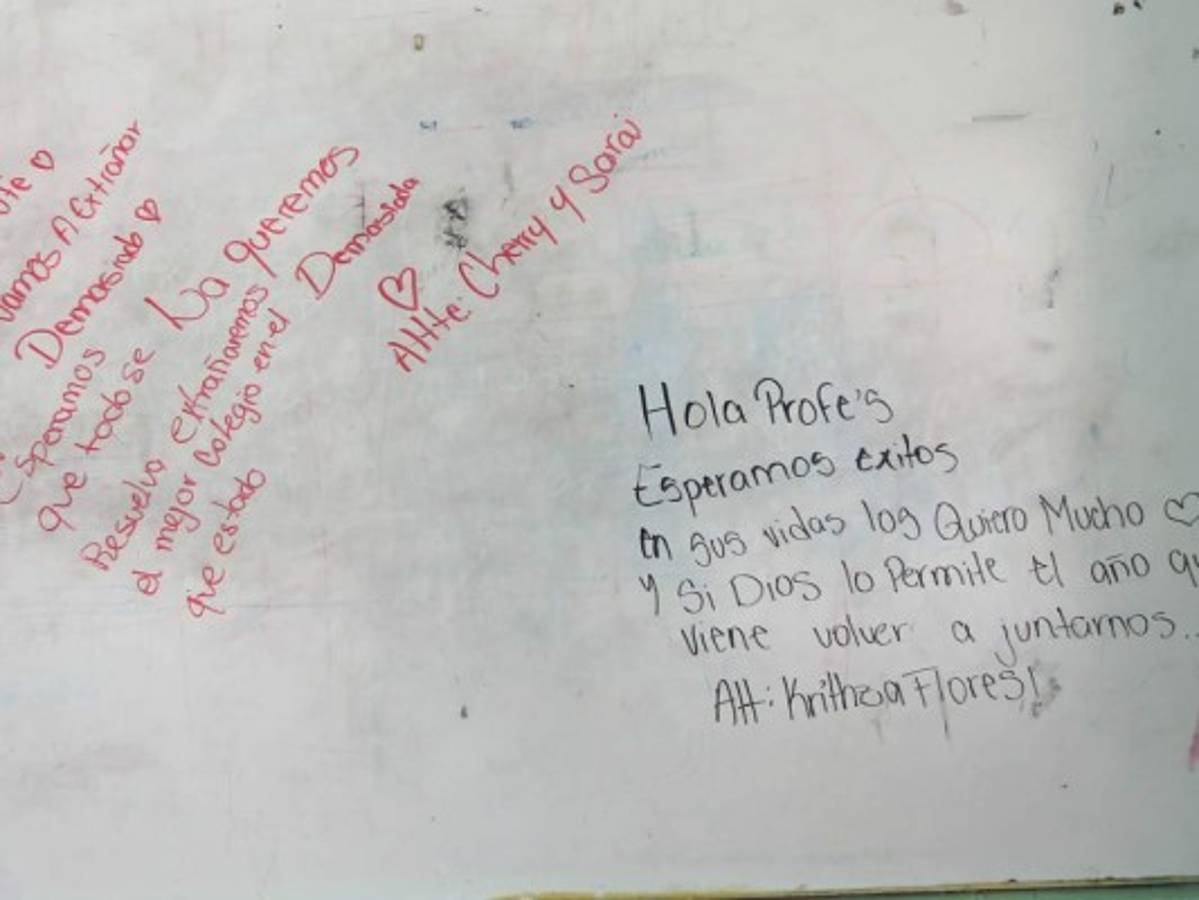 vamos A Extrañar
Demasiado ♡
Esperamos
que todo se
Resuelva extrañaremos
el mejor Colegio en el
que estado
La queremos
Demasiada
♡
Att: Cherry y Sarai
Hola Profe's
Esperamos exitos
en sus vidas los Quiero Mucho ♡
y Si Dios lo Permite el año qu
viene volver a juntarnos...
Att: Krithza Flores!